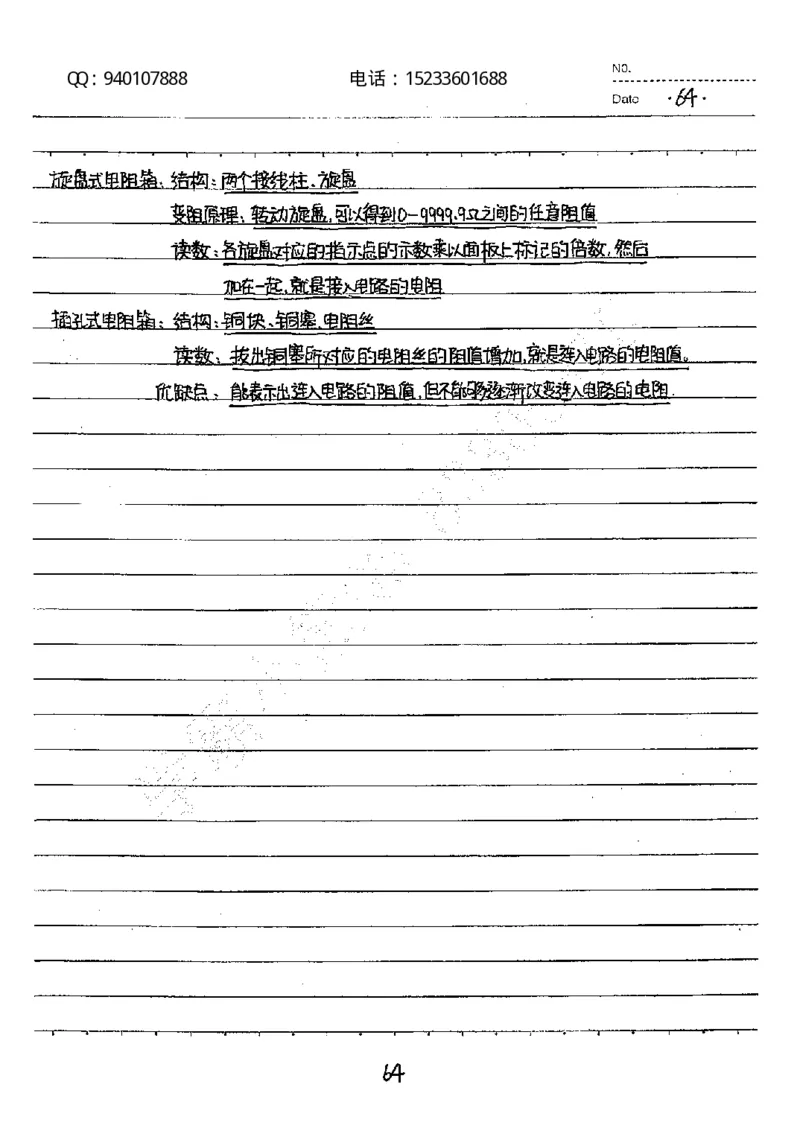 QQ：940107888 电话：15233601688 NO.
Date ·64·
旋盘式电阻箱：结构：两个接线柱、旋盘
变阻原理：转动旋盘，可以得到0-9999.9Ω之间的任意阻值
读数：各旋盘对应的指示点的示数乘以面板上标记的倍数，然后
加在一起，就是接入电路的电阻
插孔式电阻箱：结构：铜块、铜塞、电阻丝
读数：拔出铜塞所对应的电阻丝的阻值增加，就是连入电路的电阻值。
优缺点：能表示出连入电路的阻值，但不能够逐渐改变连入电路的电阻.
64